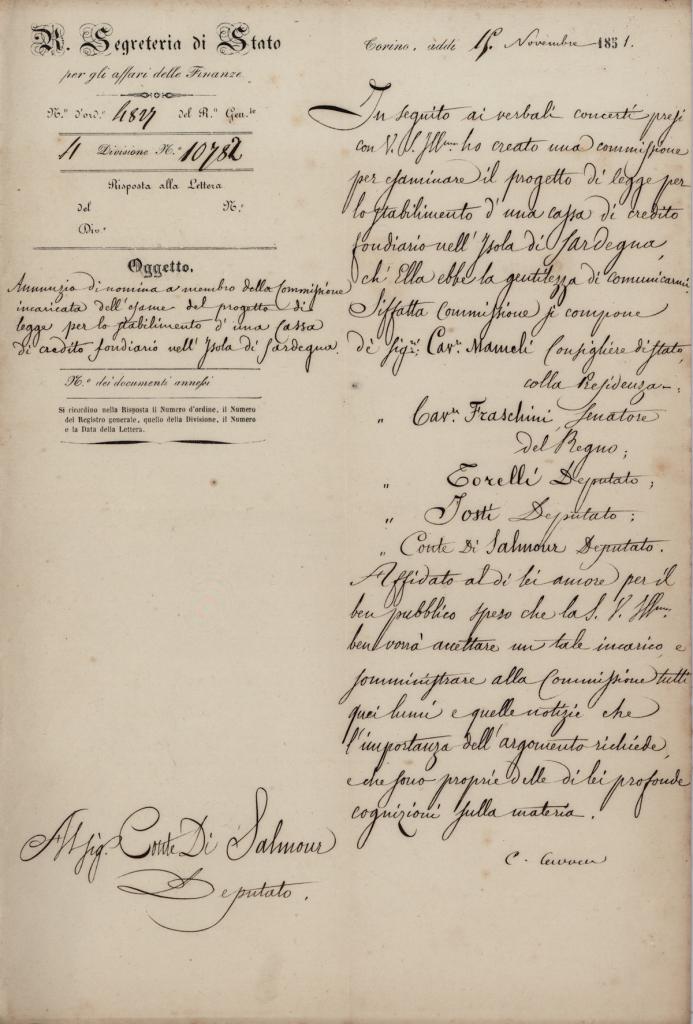 R. Segreteria di Stato
per gli affari delle Finanze
N.° d'ord.e 4827 del R.o Gen.le
4 Divisione N.° 10782
Risposta alla Lettera
del N.°
Div.e
Oggetto.
Annunzio di nomina a membro della Commissione
incaricata dell'esame del progetto di
legge per lo stabilimento d'una Cassa
di credito fondiario nell'Isola di Sardegna.
N.° dei documenti annessi
Si ricordino nella Risposta il Numero d'ordine, il Numero
del Registro generale, quello della Divisione, il Numero
e la Data della Lettera.
Al Sig. Conte Di Salmour
Deputato.
Torino, addì Novembre 1851.
In seguito ai verbali concerti presi
con V. S. Ill.ma ho creato una commissione
per esaminare il progetto di legge per
lo stabilimento d'una cassa di credito
fondiario nell'Isola di Sardegna,
ch'Ella ebbe la gentilezza di comunicarmi.
Siffatta Commissione si compone
de' Sig.ri Cav.re Mameli Consigliere di Stato,
colla Presidenza;
" Cav.re Fraschini, Senatore
del Regno;
" Torelli Deputato;
" Josti Deputato;
" Conte Di Salmour Deputato.
Affidato al di lei amore per il
ben pubblico spero che la S. V. Ill.ma
ben vorrà accettare un tale incarico e
somministrare alla Commissione tutti
quei lumi e quelle notizie che
l'importanza dell'argomento richiede,
e che sono proprie delle di lei profonde
cognizioni sulla materia.
C. Cavour